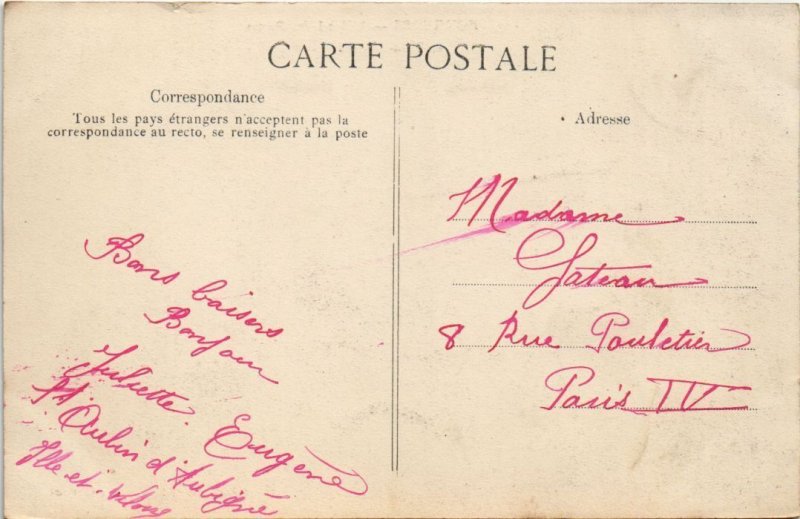 CARTE POSTALE
Correspondance
Tous les pays étrangers n'acceptent pas la
correspondance au recto, se renseigner à la poste
Bons baisers
Bonjour
Juliette. Eugène
St Aubin d'Aubigné
Ille-et-
Adresse
Madame
Gateau
8 Rue Pouletier
Paris IV